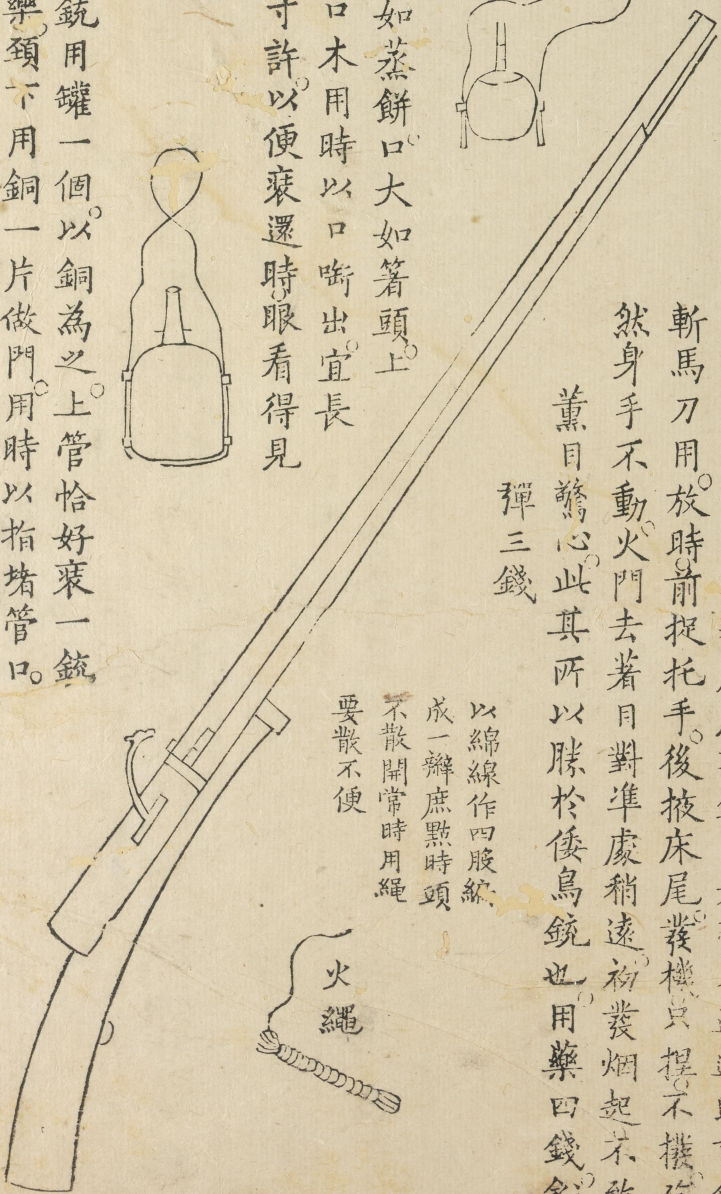 斬馬刀用。放時前捉托手。後掖床尾。發機只捏。不撥
然身手不動。火門去著目對準處稍遠。初發烟起不致
薰目驚心。此其所以勝於倭鳥銃也。用藥四錢
彈三錢
以綿線作四股
成一辮庶點時頭
不散開常時用繩
要散不便
火繩
如蒸餅。口大如箸頭。上
口木用時以口啣出。宜長
寸許。以便裝還時。眼看得見
銃用罐一個。以銅為之。上管恰好裝一銃
藥。頸下用銅一片做門。用時以指堵管口。